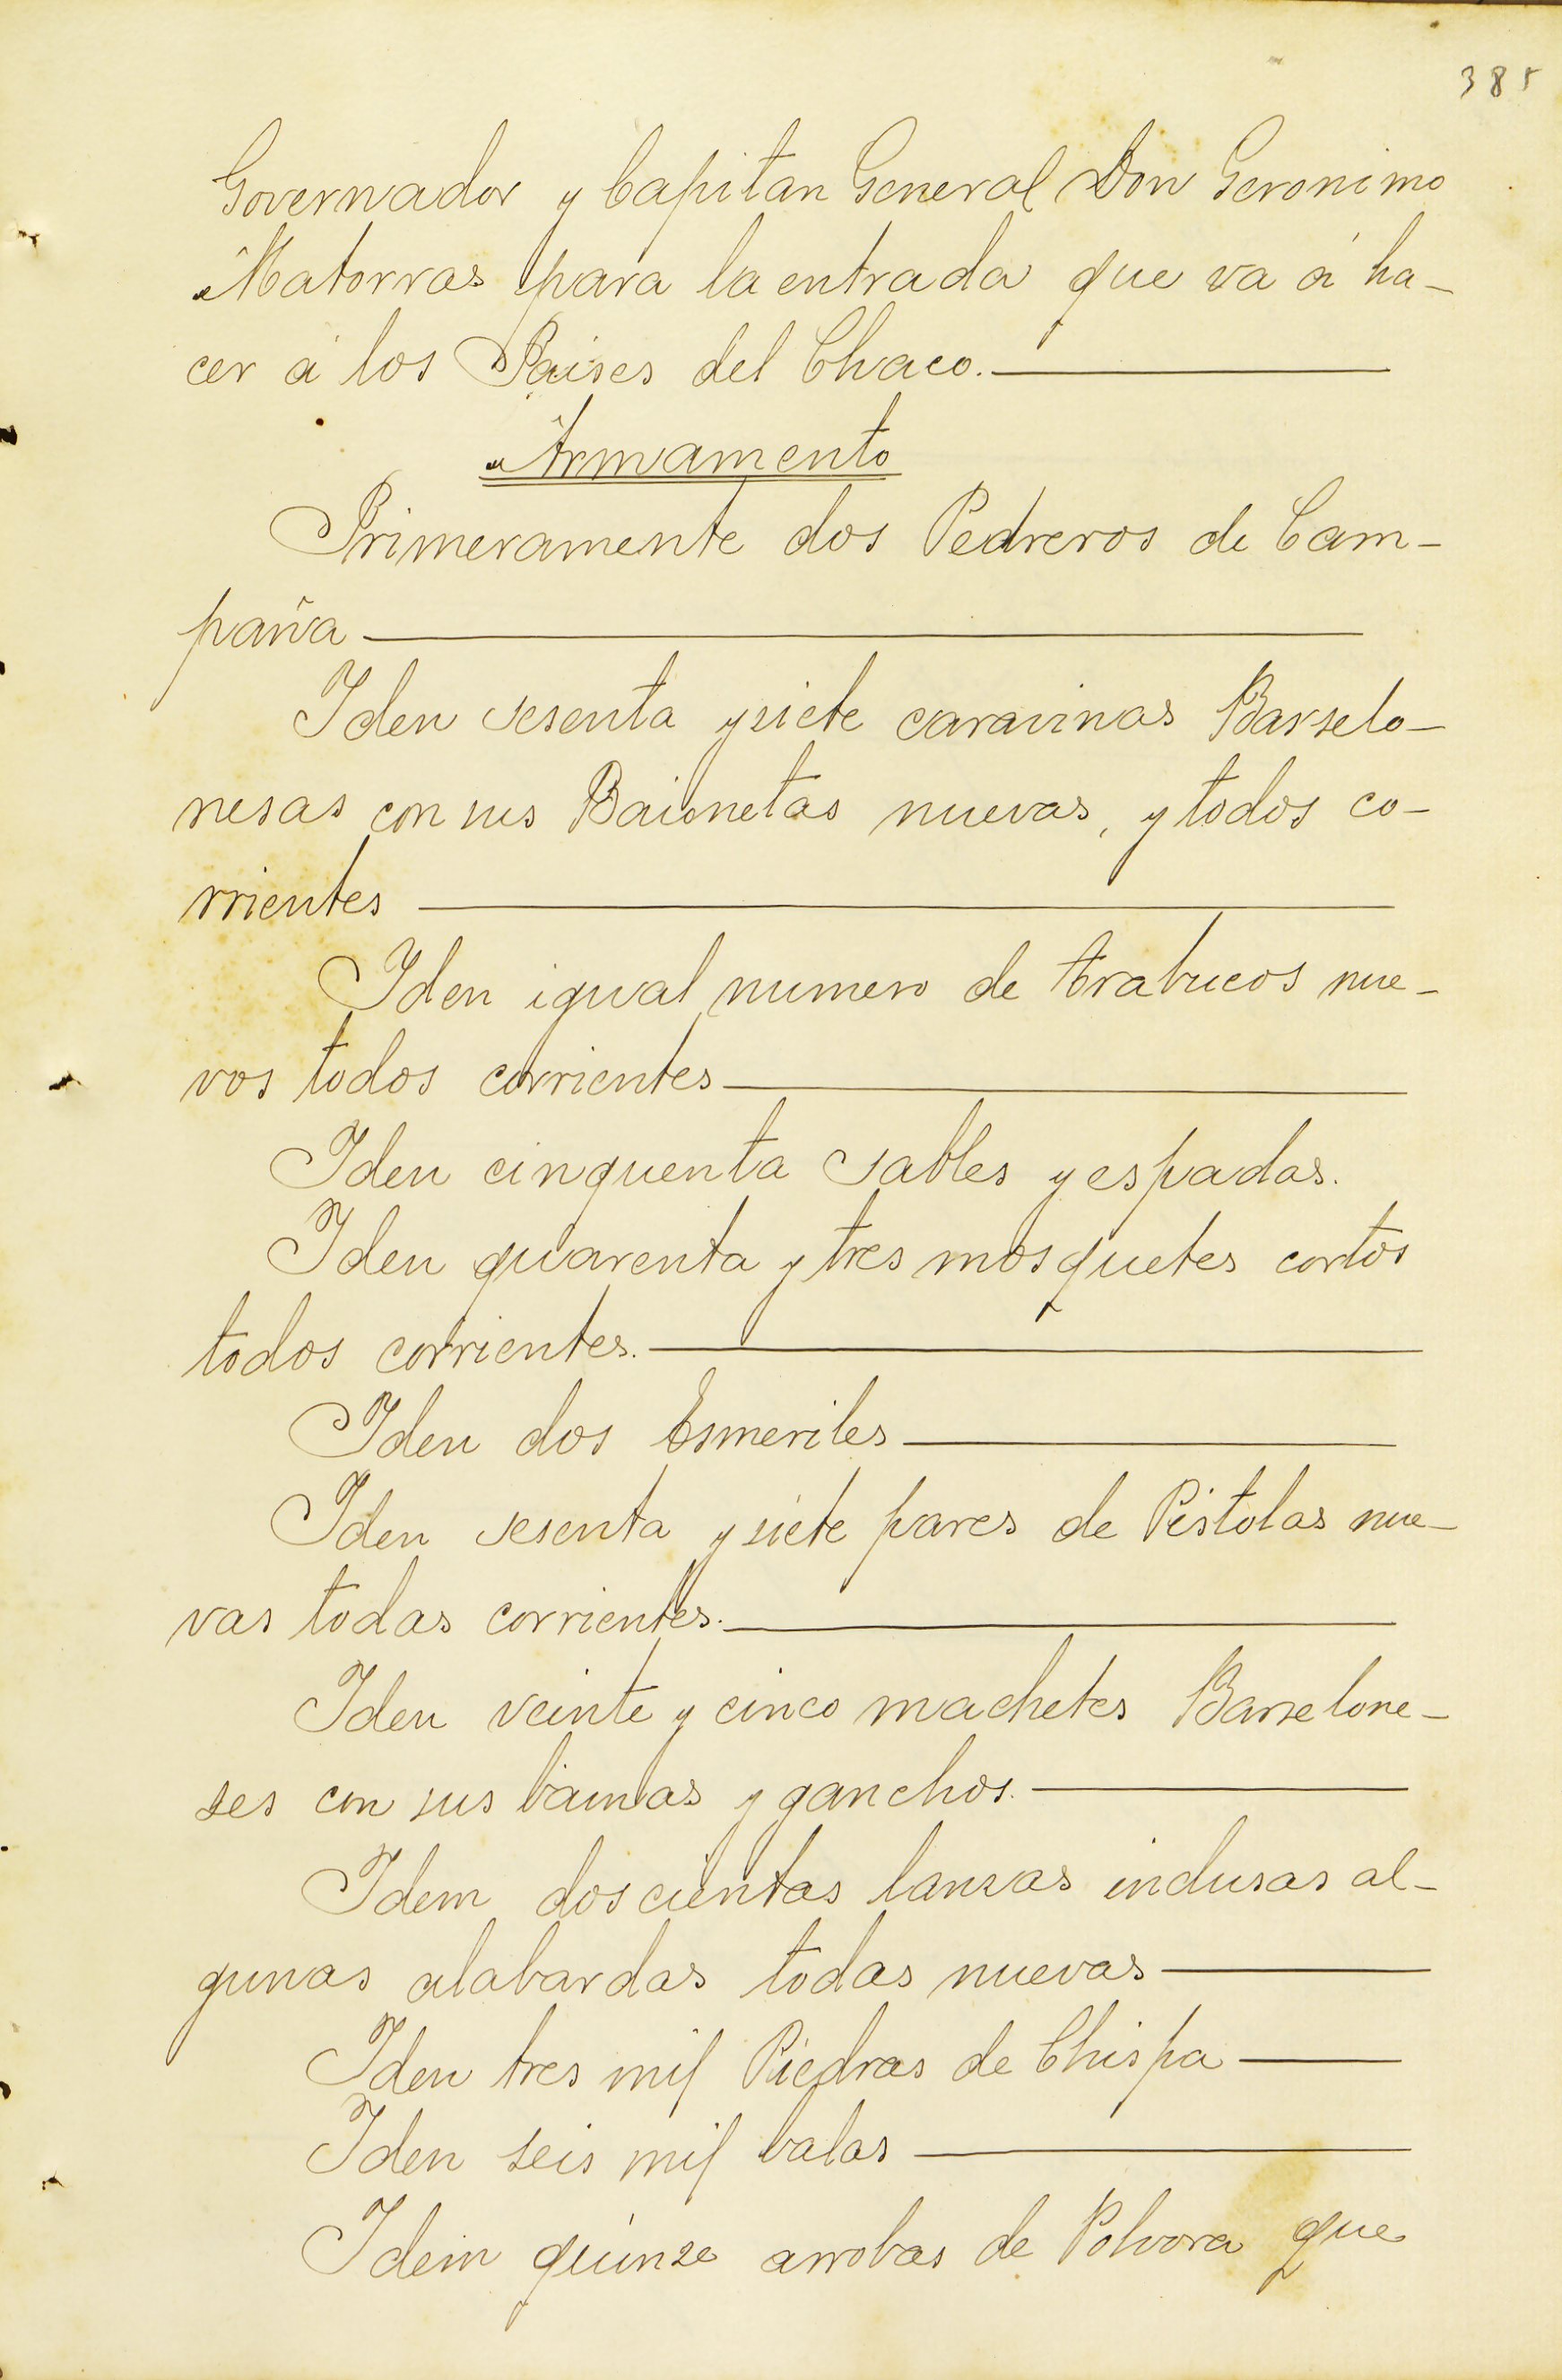 385
Governador y Capitan General Don Geronimo
Matorras para la entrada que va á ha-
cer á los Paises del Chaco.
Armamento
Primeramente dos Pedreros de Cam-
paña
Iden sesenta y siete caravinas Barselo-
nesas con sus Baionetas nuevas, y todos co-
rrientes
Iden igual numero de trabucos nue-
vos todos corrientes
Iden cinquenta sables y espadas.
Iden quarenta y tres mosquetes cortos
todos corrientes.
Iden dos Esmeriles
Iden sesenta y siete pares de Pistolas nue-
vas todas corrientes.
Iden veinte y cinco machetes Barselone-
ses con sus bainas y ganchos.
Idem doscientas lansas inclusas al-
gunas alabardas todas nuevas
Iden tres mil Piedras de Chispa
Iden seis mil balas
Idem quinse arrobas de Polvora que